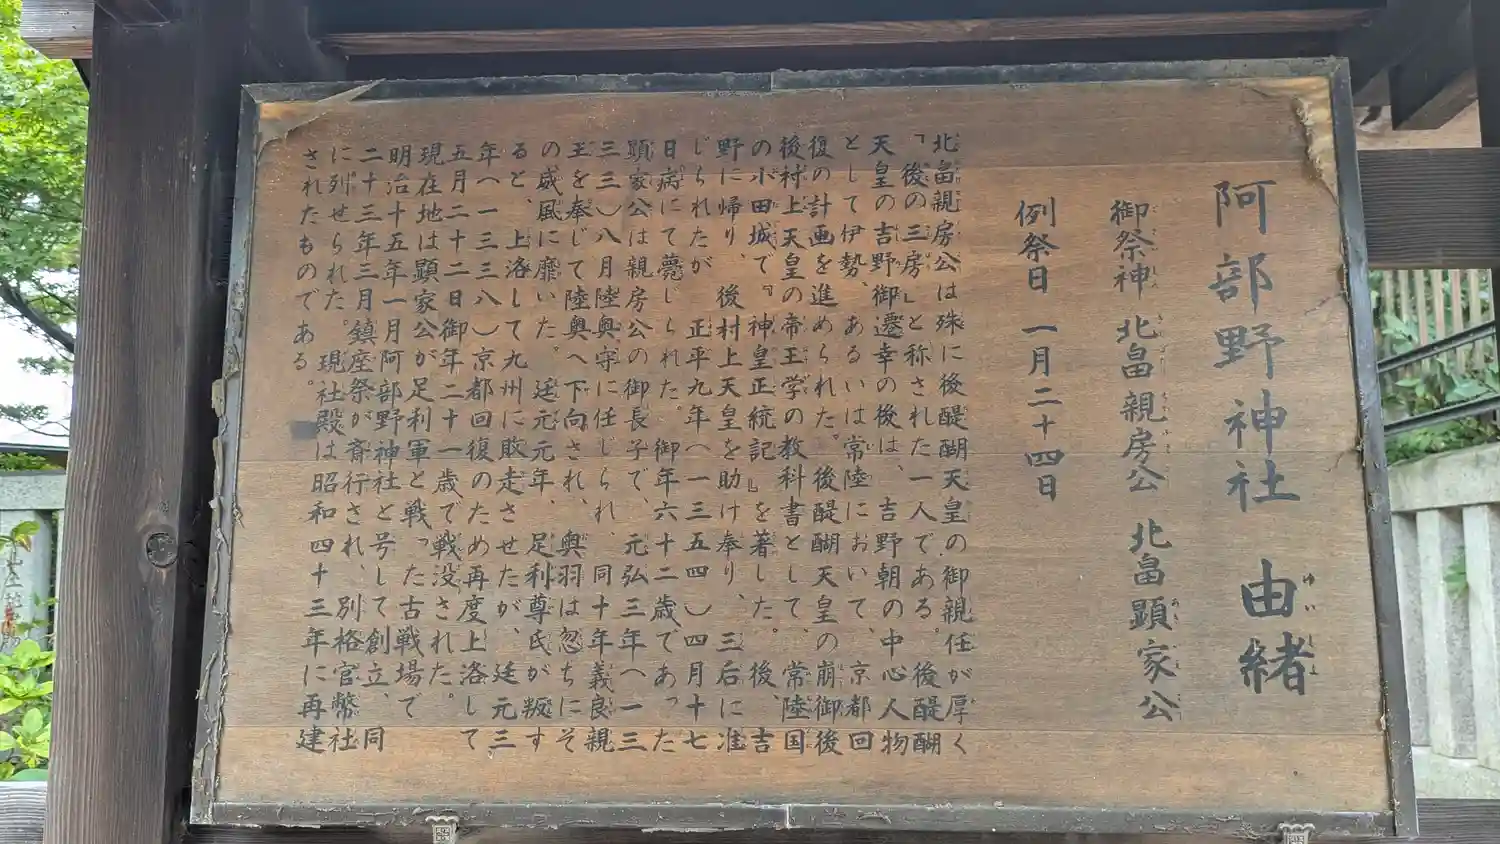 阿部野神社 由緒
御祭神 北畠親房公 北畠顕家公
例祭日 一月二十四日
北畠親房公は殊に後醍醐天皇の御親任が厚く
『後の三房』と称された一人である。後醍醐
天皇の吉野御遷幸の後は、吉野朝の中心人物
として伊勢、あるいは常陸において、京都回
復の計画を進められた。後醍醐天皇の崩御後
後村上天皇の帝王学の教科書として、常陸国
の小田城で『神皇正統記』を著した。後、吉
野に帰り、後村上天皇を助け奉り、三后に准
じられたが、正平九年へ一三五四)四月十七
日病にて薨じられた。御年六十二歳であった
顕家公は親房公の御長子で、元弘三年へ一三
三三)八月陸奥守に任じられ、同十年義良親
王を奉じて陸奥へ下向され、奥羽は忽ちにそ
の威風に靡いた。延元元年、足利尊氏が叛す
ると、上洛して九州に敗走させたが、延元三
年へ一三三八)京都回復のため再度上洛して
五月二十二日御年二十一歳で戦没された。
現在地は顕家公が足利軍と戦った古戦場で
明治十五年一月阿部野神社と号して創立、同
二十三年三月鎮座祭が斎行され、別格官幣社
に列せられた。現社殿は昭和四十三年に再建
されたものである。